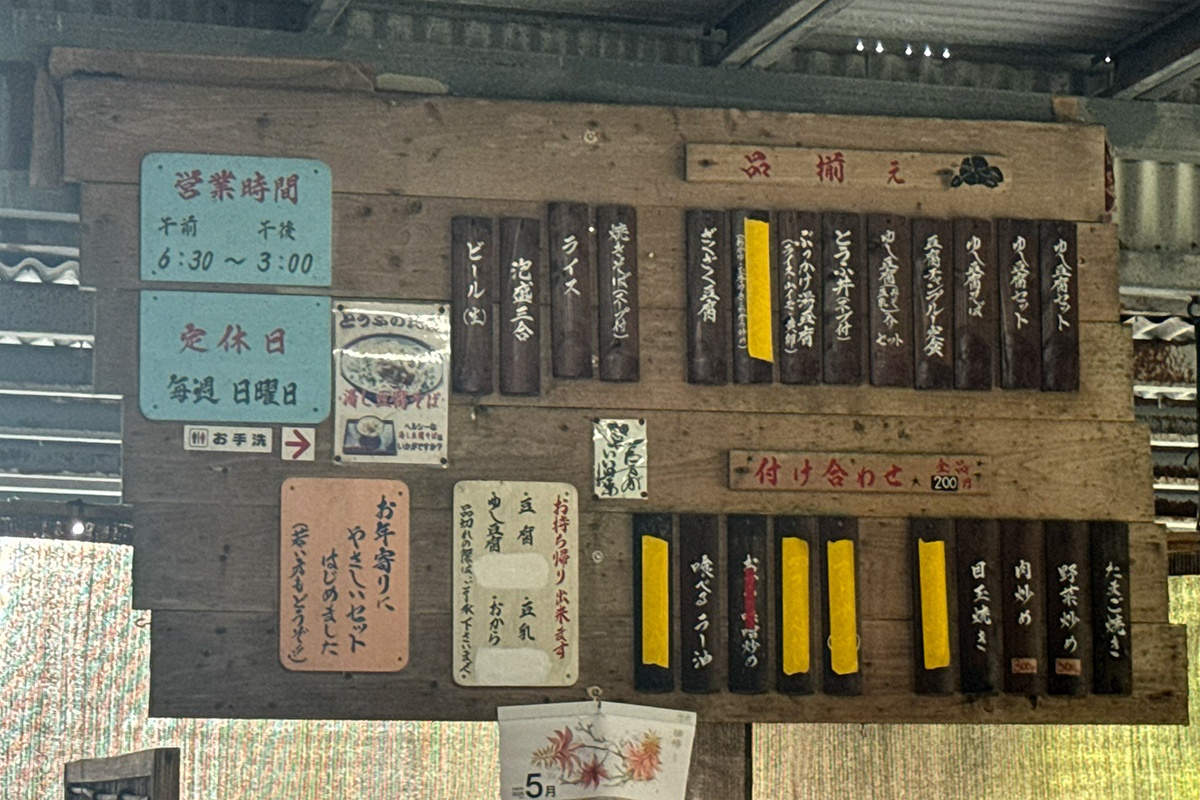 営業時間
午前 午後
6:30 〜 3:00
定休日
毎週 日曜日
お手洗
とうふの
湯し豆腐そば
ヘルシーな
湯し豆腐そばは
いかがですか?
お年寄りに
やさしいセット
はじめました
(若い方もどうぞ)
お持ち帰り出来ます
豆腐 豆乳
ゆし豆腐 おから
品切れの際はご了承下さいませ
品揃え
ゆし豆腐セット
ゆし豆腐セット
ゆし豆腐そば
豆腐チャンプルー定食
ゆし豆腐
セット
とうふ丼(そば付)
ぶっかけ湯し豆腐
ざるざる豆腐
焼きそば(スープ付)
ライス
泡盛三合
ビール(生)
付け合わせ 全品200円
たまご焼き
野菜炒め
300
肉炒め
300
目玉焼き
味噌炒め
喰べるラー油
5月